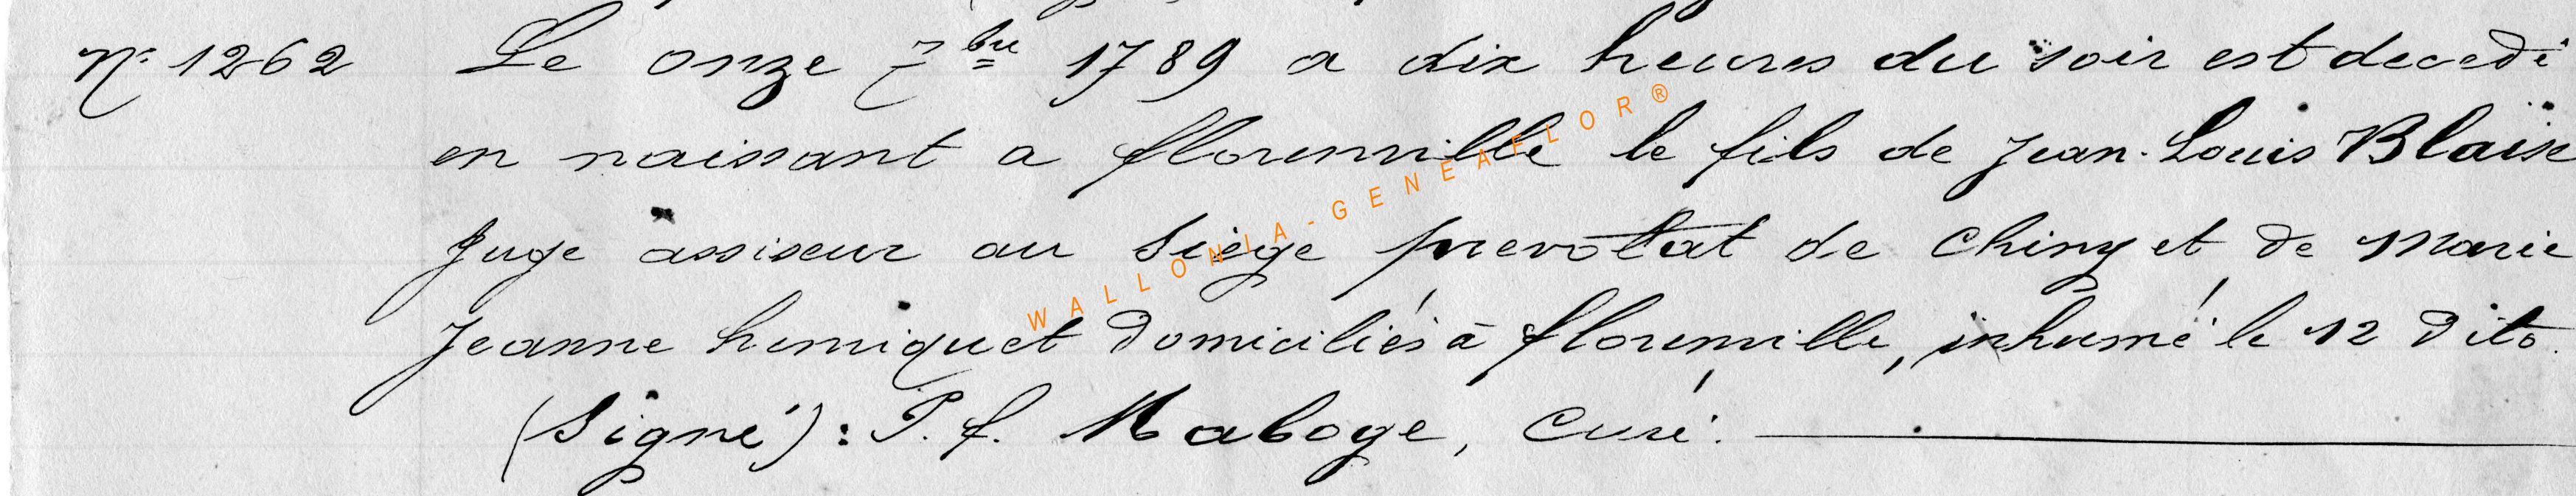 N° 1262 Le onze 7bre 1789 a dix heures du soir est decedé
en naissant a florenville le fils de Jean-Louis Blaise
Juge assiseur au siège prevôtat de Chiny et de Marie
Jeanne henriquet domiciliés à florenville, inhumé le 12 dito.
(Signé) : P. f. Maboge, Curé.
WALLONIA-GENEAFLOR®